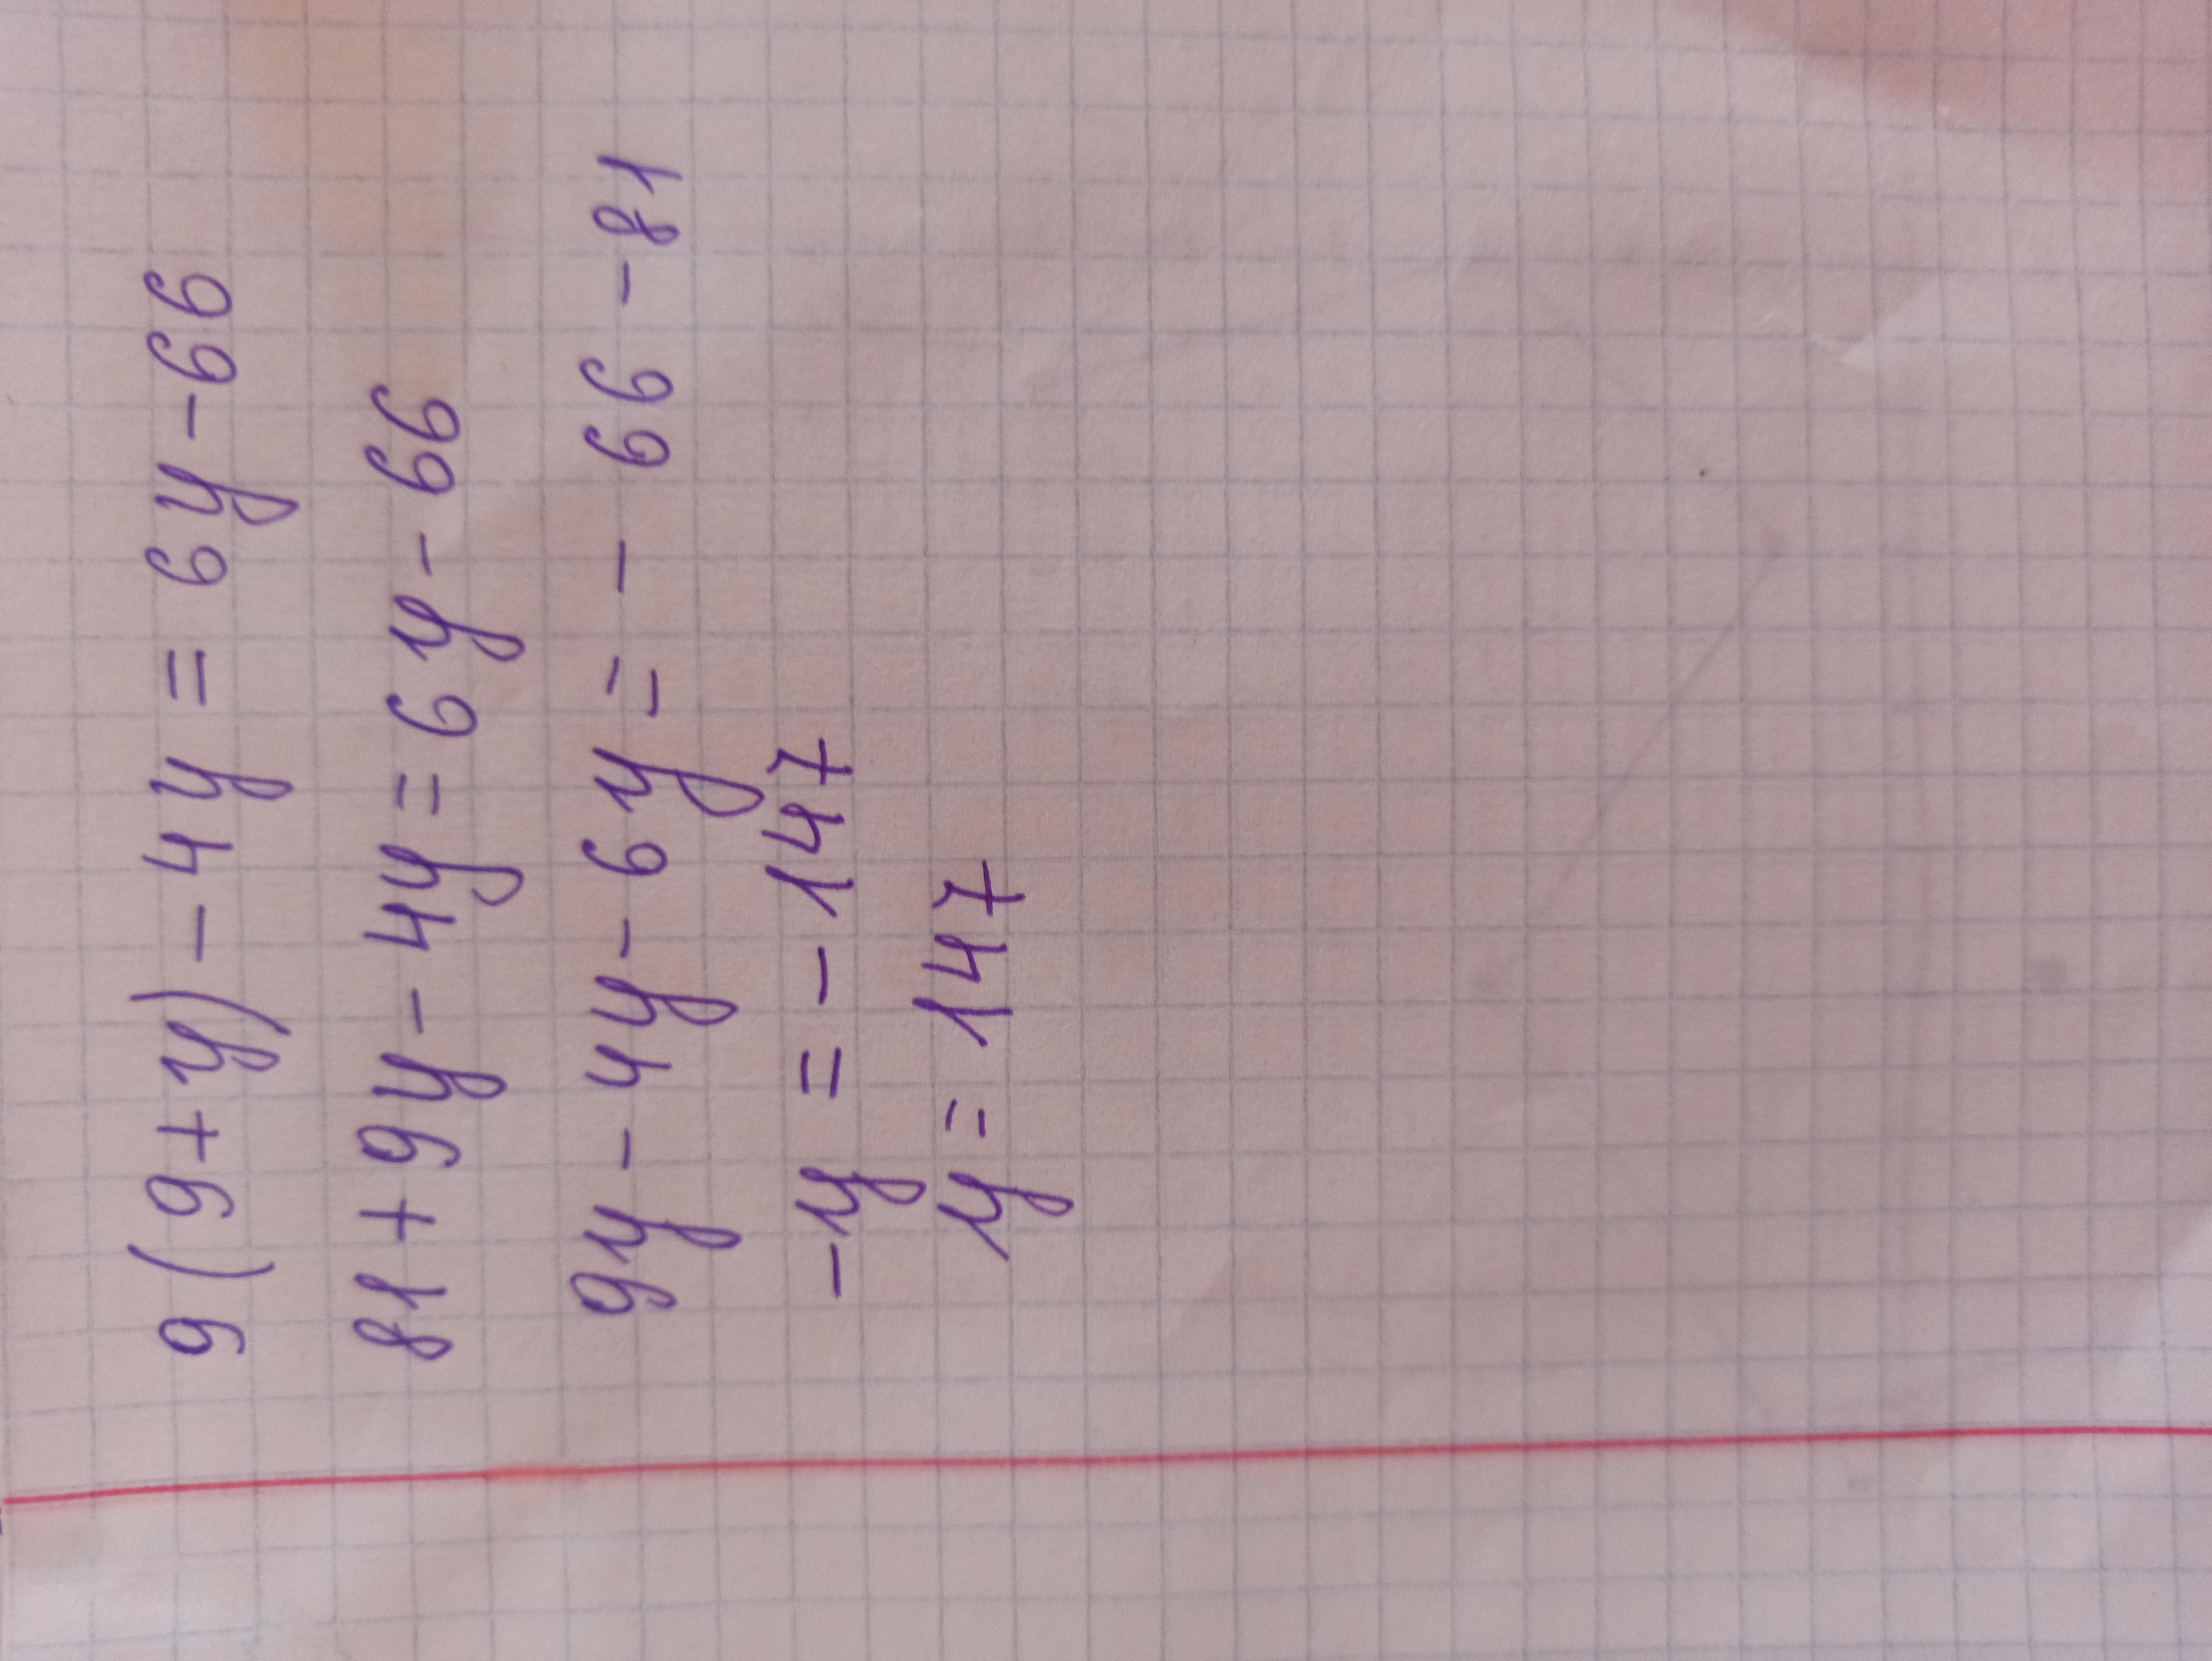 9(9+y) - 4y = 6y - 66
81 + 9y - 4y = 6y - 66
9y - 4y - 6y = - 66 - 81
-y = - 147
y = 147